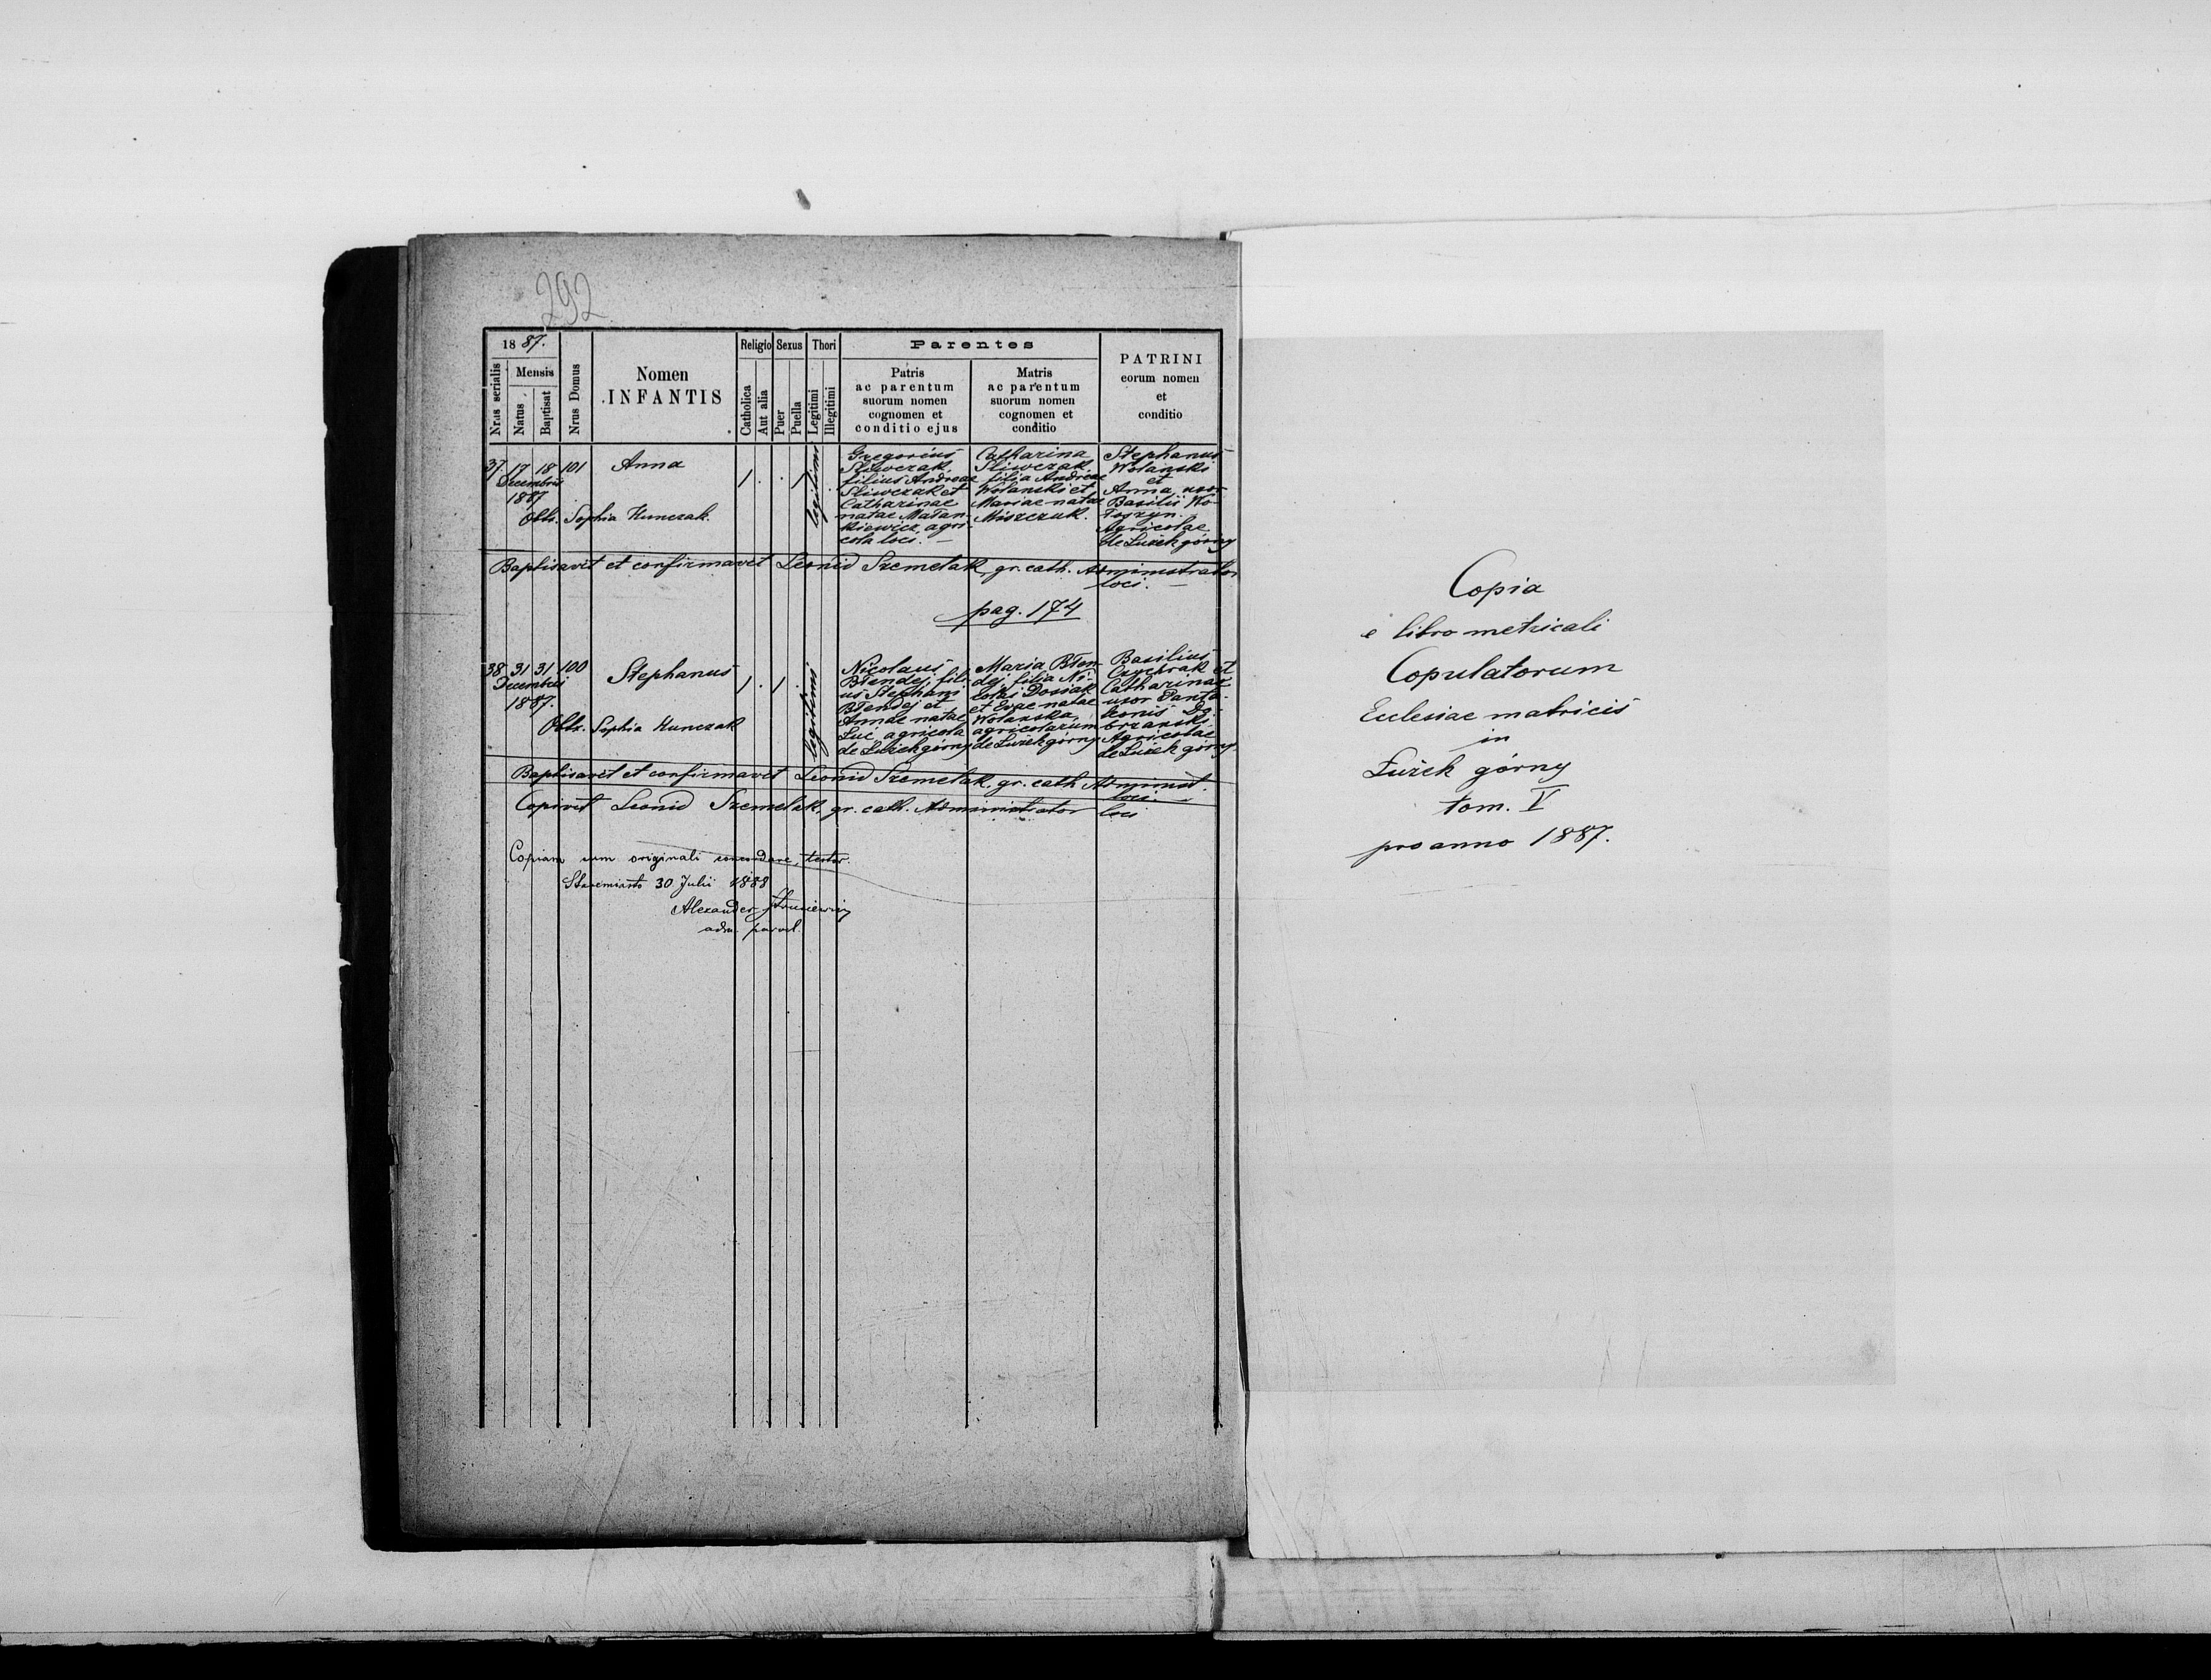 292
1887.
Nrus serialis
Mensis
Natus
Baptisat
Nrus Domus
Nomen
INFANTIS
Religio
Catholica
Aut alia
Sexus
Puer
Puella
Thori
Legitimi
Illegitimi
Parentes
Patris
ac parentum
suorum nomen
cognomen et
conditio ejus
Matris
ac parentum
suorum nomen
cognomen et
conditio
PATRINI
eorum nomen
et
conditio
37. 17 18 101 Anna
Decembris
1887
Obst. Sophia Hunczak.
legitimi
Gregorius
Sliwczak,
filius Andreae
Sliwczak et
Catharinae
natae Małan-
kiewicz, agri-
cola loci. —
Catharina
Sliwczak
filia Andreae
Wolanski et
Mariae natae
Miszczuk.
Stephanus
Wolanski
et
Anna uxor
Basilii Wo-
łoszyn.
Agricolae
de Łużek górny
Baptisavit et confirmavit Leonid Szemełak, gr. cath. Administrator
loci. —
pag. 174
38 31 31 100 Stephanus
Decembris
1887.
Obst. Sophia Hunczak
legitimi
Nicolaus
Błendej, fili-
us Stephani
Błendej et
Annae natae
Luc agricola
de Łużek górny
Maria Błen-
dej, filia Ni-
colai Dosiak
et Evae natae
Wolanska,
agricolarum
de Łużek górny
Basilius
et
Catharina
uxor Panta-
leonis Do-
brzanski.
Agricolae
de Łużek górny
Baptisavit et confirmavit Leonid Szemełak, gr. cath Administ.
loci. —
Copivit Leonid Szemełak, gr. cath. Administrator loci
Copiam cum originali concordare testor.
Staremiasto 30 Julii 1888
Alexander
adm. paroch.
Copia
e libro metricali
Copulatorum
Ecclesiae matricis
in
Łużek górny
tom. V
pro anno 1887.